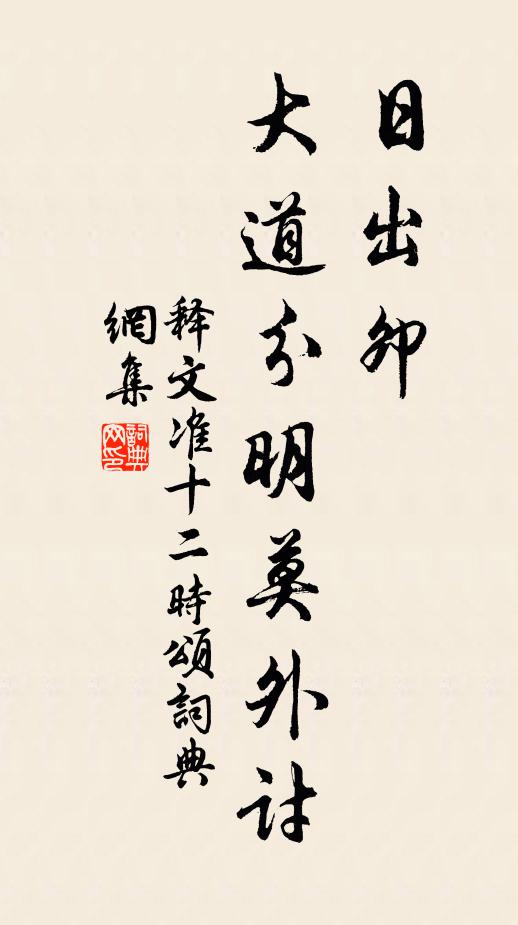 日出卯
大道分明莫外討
释文准十二時頌詞典
網集
詞典
网印